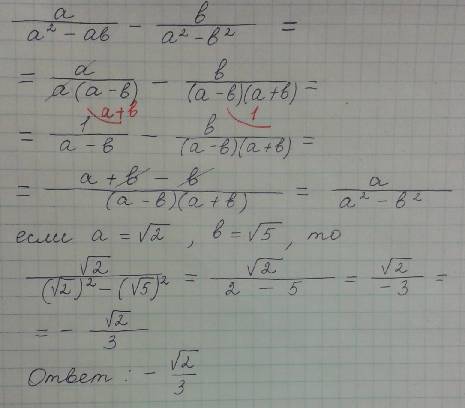 a/(a² - ab) - b/(a² - b²) =
= a/(a(a - b)) - b/((a - b)(a + b)) =
a+b 1
= 1/(a - b) - b/((a - b)(a + b)) =
= (a + b - b)/((a - b)(a + b)) = a/(a² - b²)
если a = √2 , b = √5 , то
√2/((√2)² - (√5)²) = √2/(2 - 5) = √2/(-3) =
= - √2/3
Ответ : - √2/3